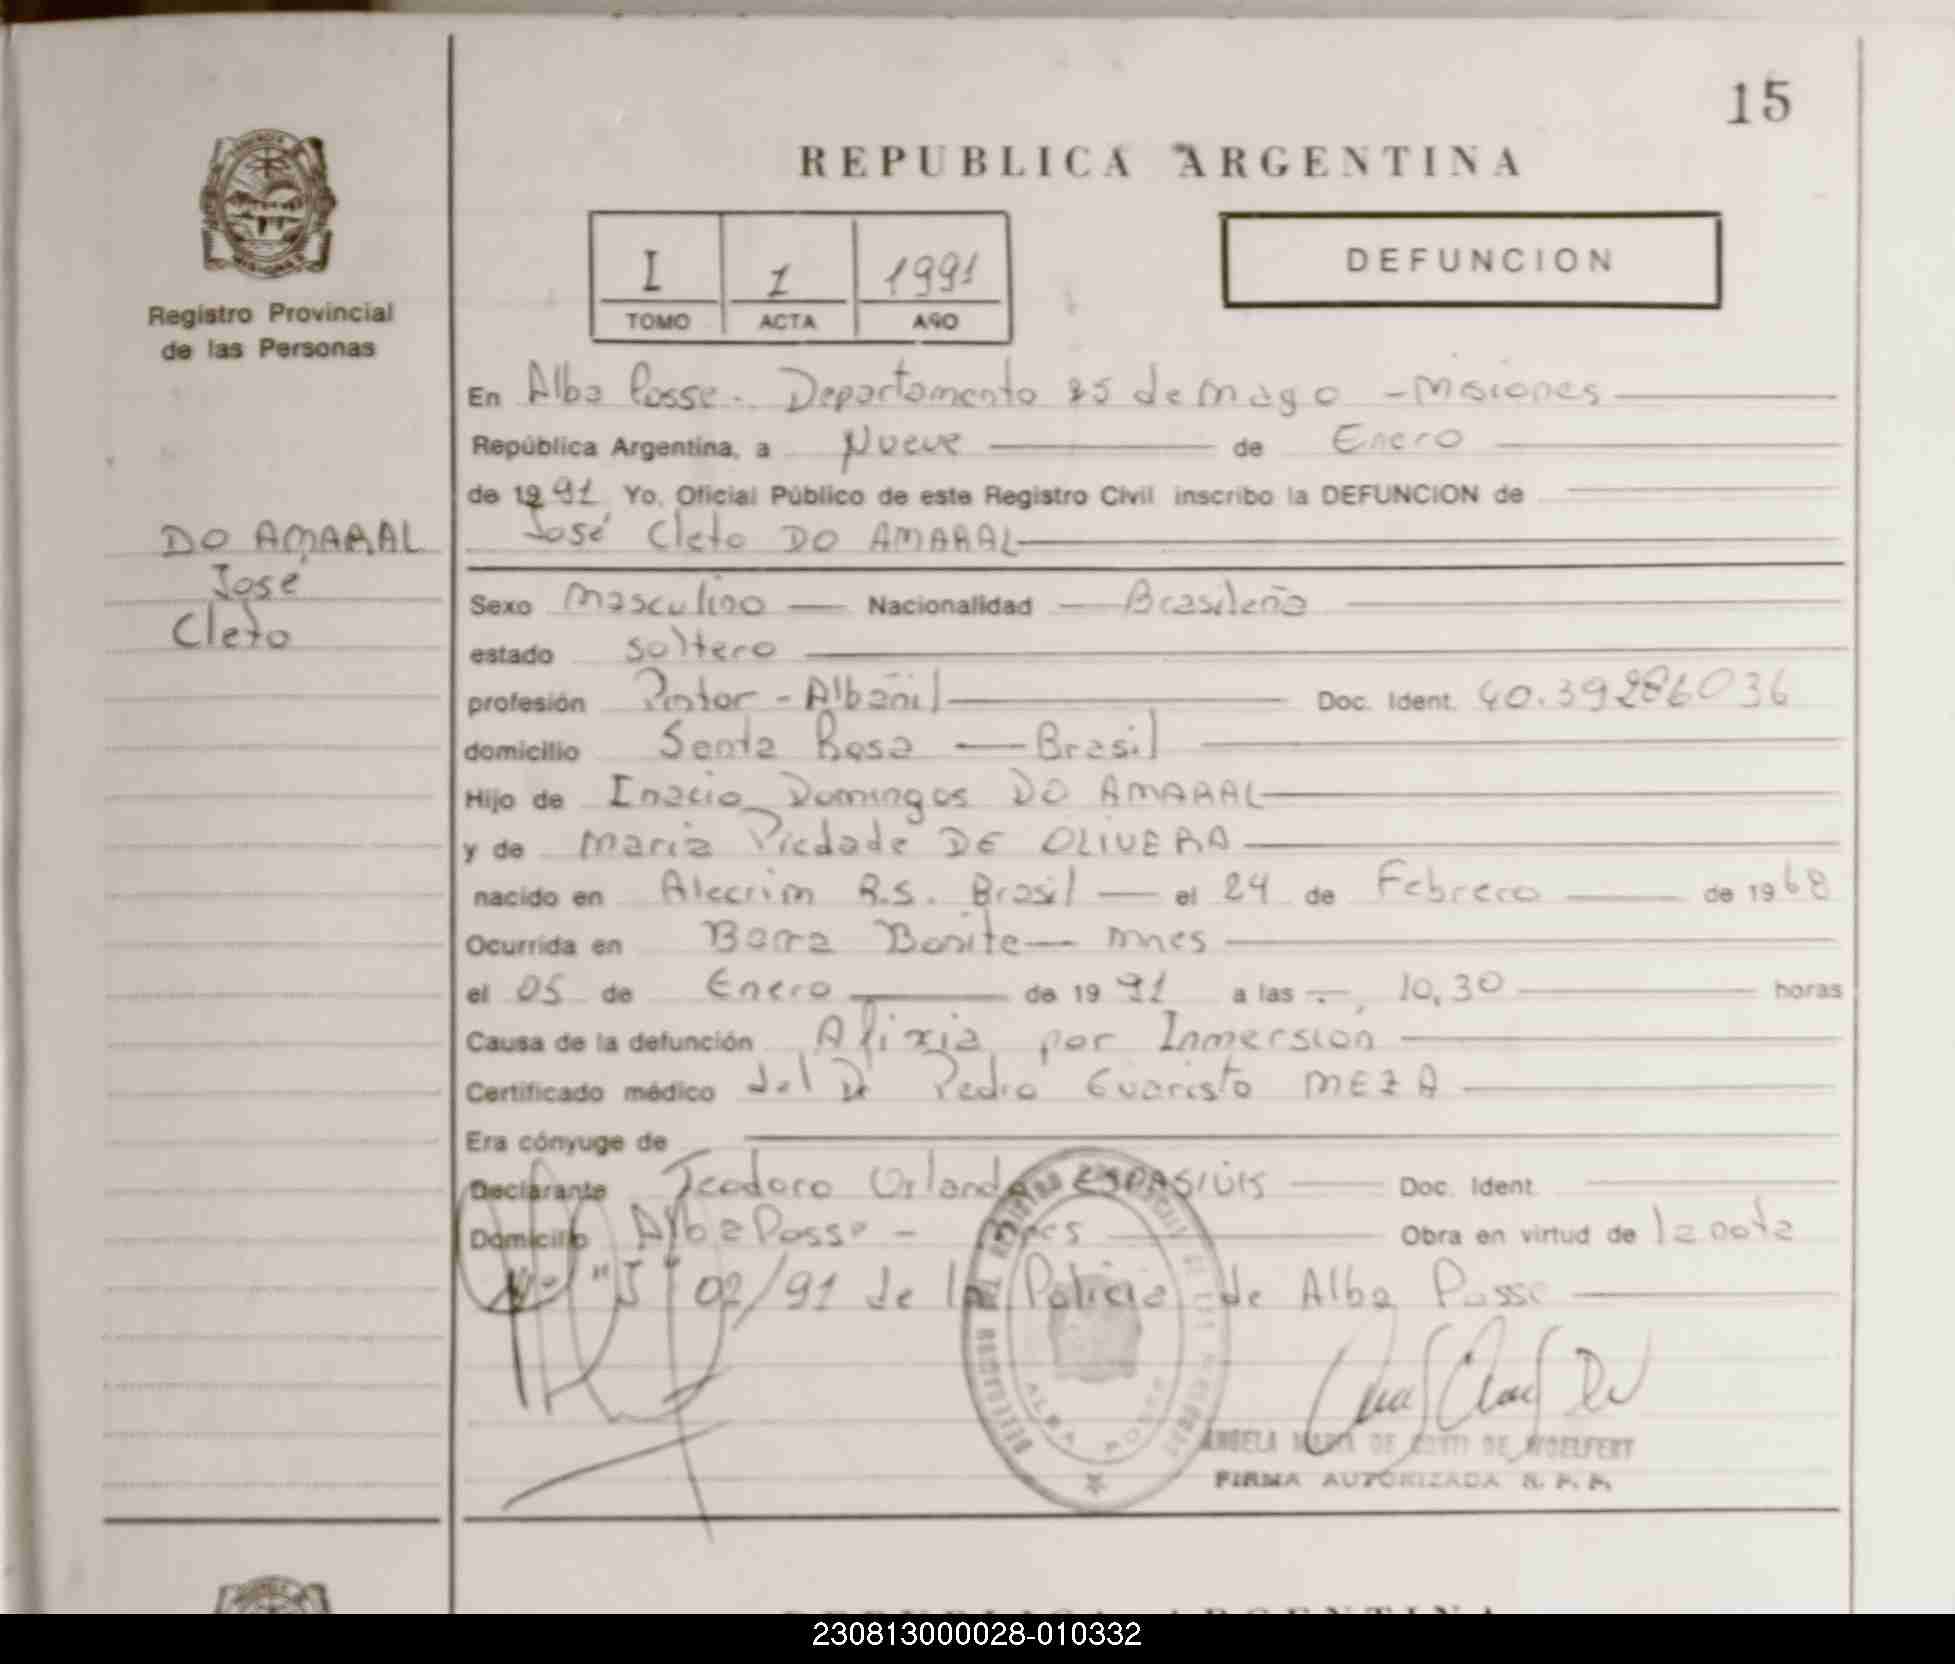 15
REPUBLICA ARGENTINA
I 1 1991
TOMO ACTA AÑO
DEFUNCION
Registro Provincial
de las Personas
DO AMARAL
José
Cleto
En Alba Posse - Departamento 25 de Mayo - Misiones
República Argentina, a Nueve de Enero
de 1991 Yo, Oficial Público de este Registro Civil inscribo la DEFUNCION de
José Cleto DO AMARAL
Sexo Masculino Nacionalidad Brasileña
estado soltero
profesión Pintor - Albañil Doc. Ident. 40.39286036
domicilio Santa Rosa - Brasil
Hijo de Inacio Domingos DO AMARAL
y de Maria Piedade DE OLIVERA
nacido en Alecrim R.S. Brasil el 24 de Febrero de 1968
Ocurrida en Barra Bonita - Mnes
el 05 de Enero de 1991 a las 10,30 horas
Causa de la defunción Afixia por Inmersion
Certificado médico del Dr Pedro Evaristo MEZA
Era cónyuge de
Declarante Teodoro Orlando Doc. Ident.
Domicilio Alba Posse - Mnes Obra en virtud de la nota
"J" 02/91 de la Policia de Alba Posse
ALBA POSSE
ANGELA MARIA DE CONTI DE WOELFERT
FIRMA AUTORIZADA R. P. P.
REPUBLICA ARGENTINA
230813000028-010332